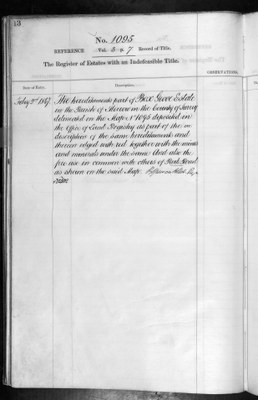 13
No. 1095
REFERENCE Vol. 3 p. 7 Record of Title.
The Register of Estates with an Indefeasible Title.
Date of Entry. Description. OBSERVATIONS.
The hereditaments part of Box Grove Estate
in the Parish of Merrow in the County of Surrey
delineated in the Map No 1095 deposited in
the Office of Land Registry as part of the
description of the same hereditaments and
thereon edged with red together with the mines
and minerals under the same And also the
free use in common with others of Park Road
as shewn on the said Map.